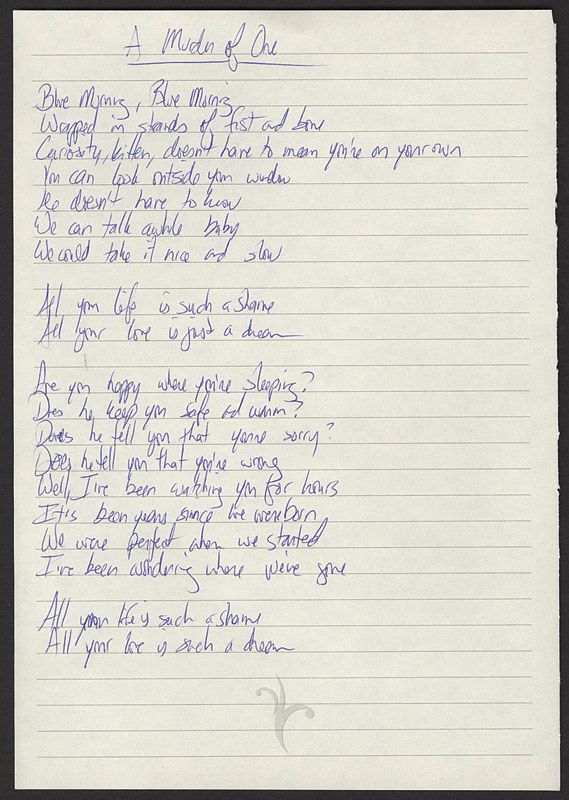 A Murder of One
Blue Morning, Blue Morning
Wrapped in strands of fist and bone
Curiosity, kitten, doesn't have to mean you're on your own
You can look outside your window
He doesn't have to know
We can talk awhile baby
We could take it nice and slow
All your life is such a shame
All your love is just a dream
Are you happy where you're sleeping?
Does he keep you safe and warm?
Does he tell you that you're sorry?
Does he tell you that you're wrong
Well, I've been watching you for hours
It's been years since we were born
We were perfect when we started
I've been wondering where we've gone
All your life is such a shame
All your love is such a dream